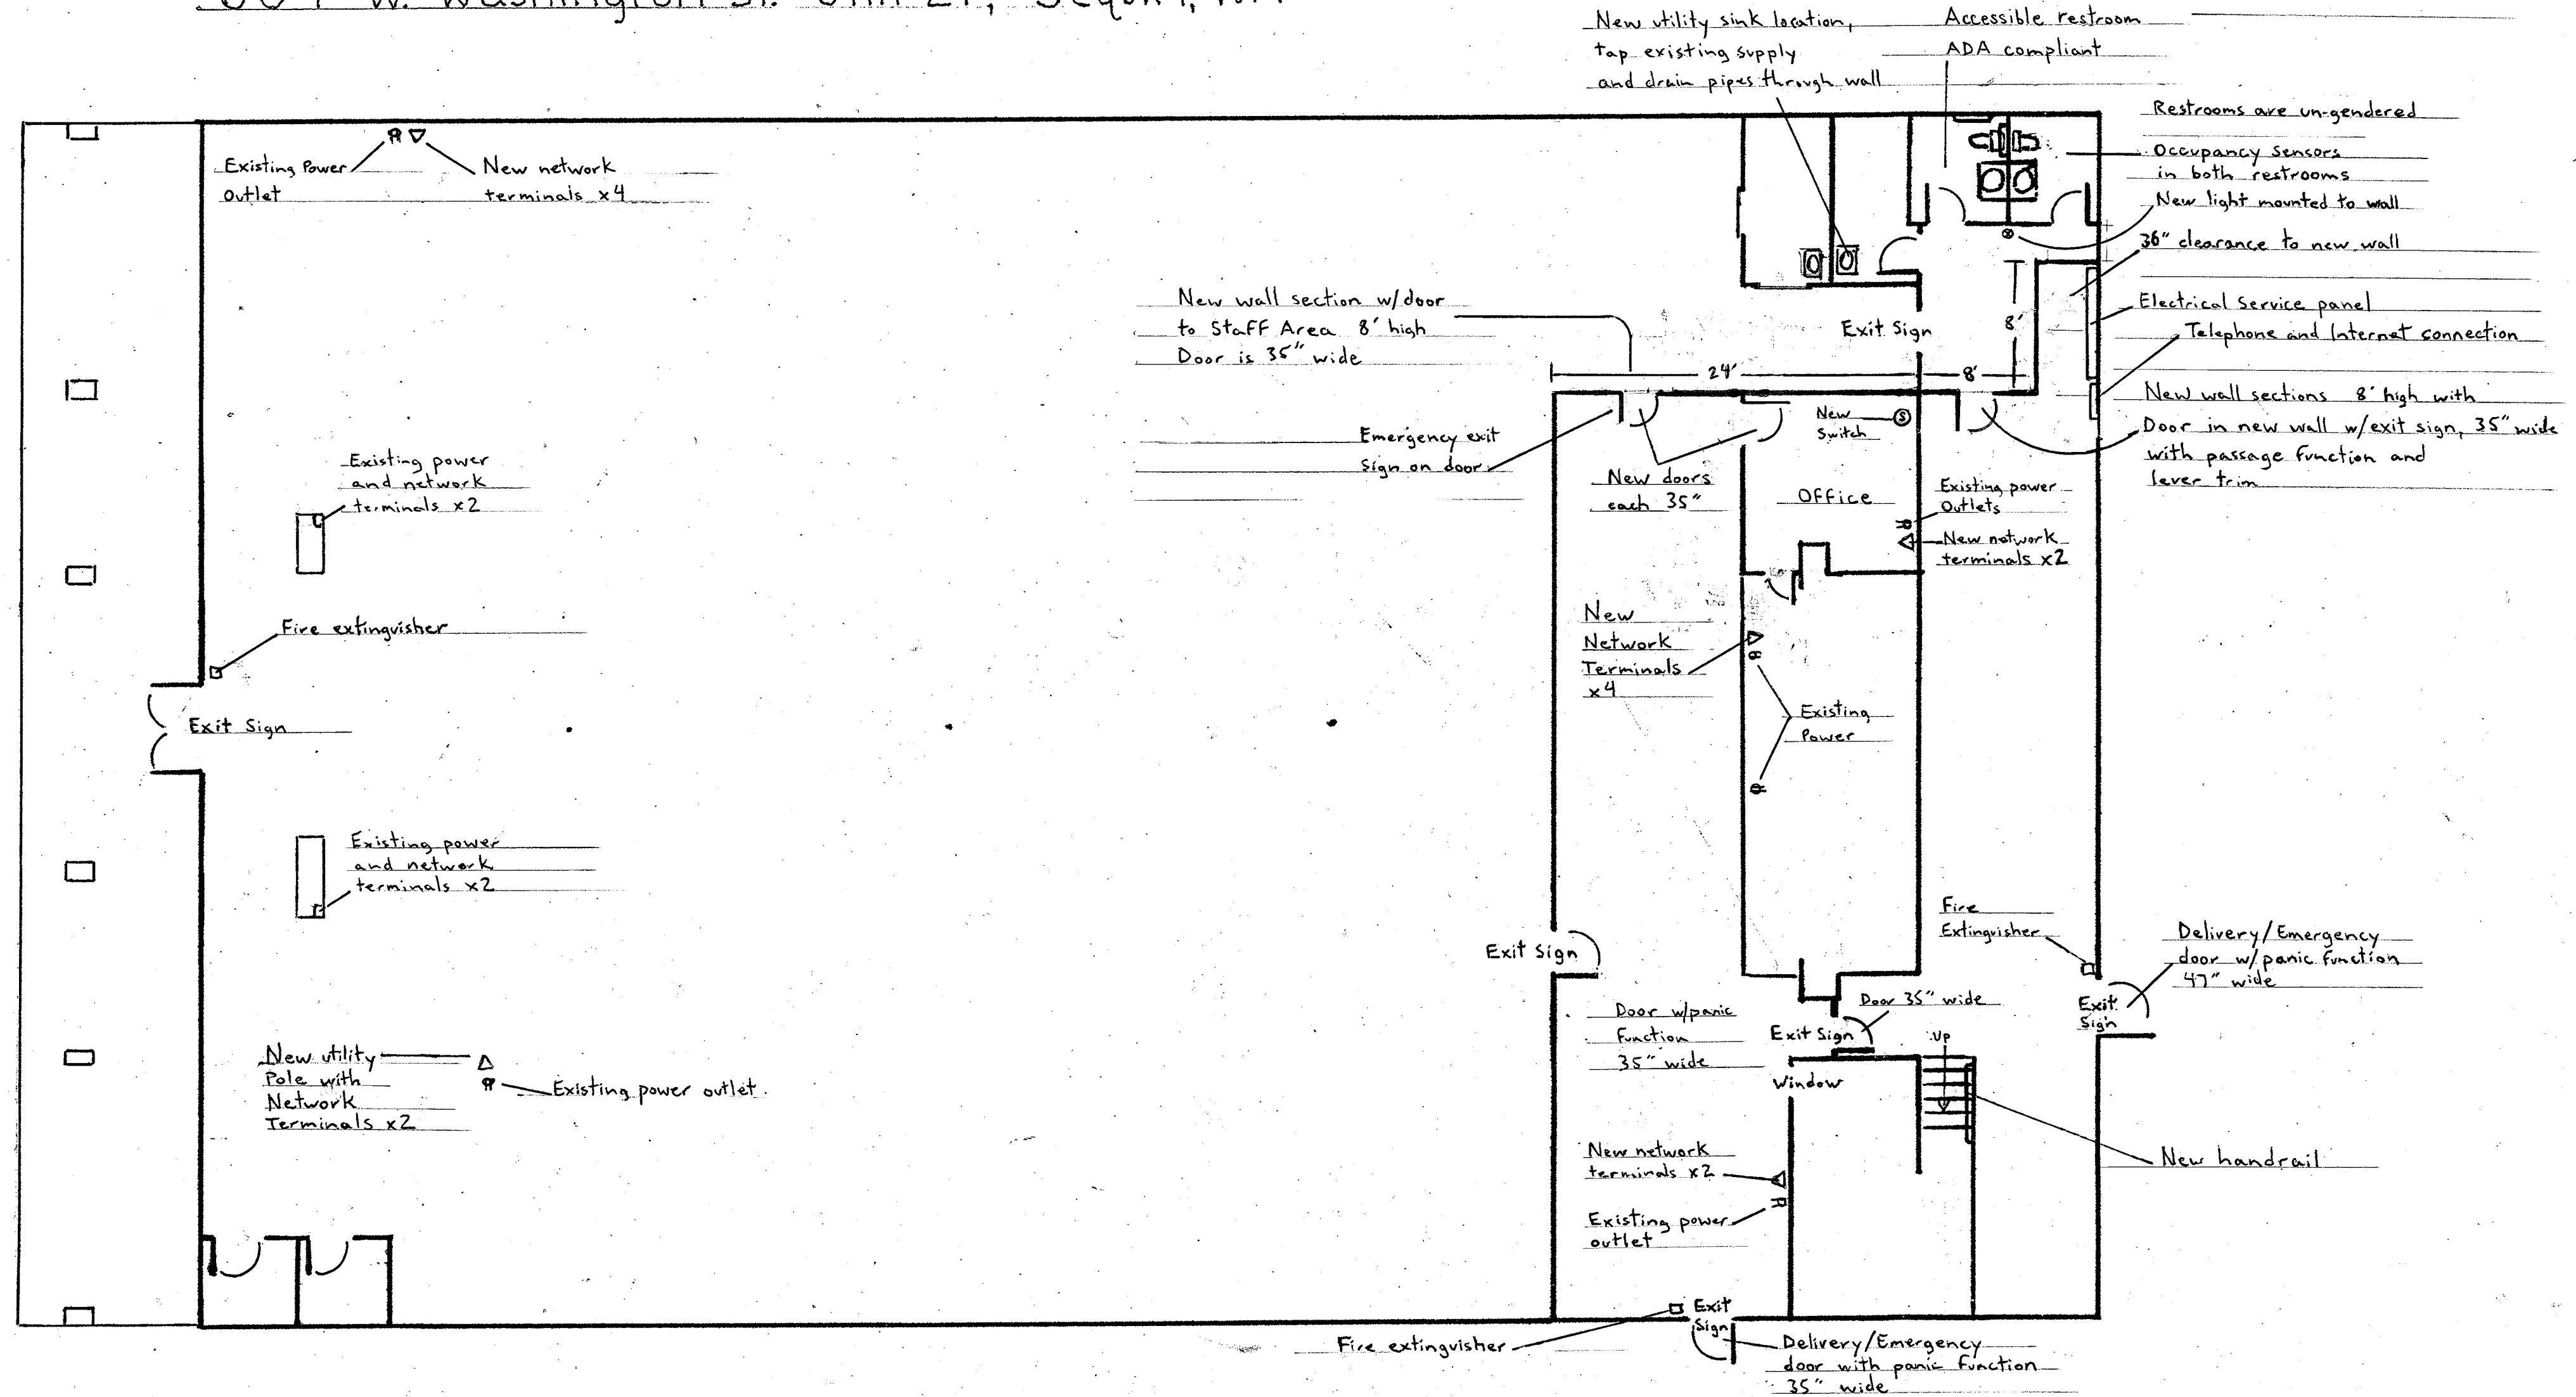 W. Washington St. Unit
New utility sink location,
tap existing supply
and drain pipes through wall
Accessible restroom
ADA compliant
Restrooms are un-gendered
Occupancy sensors
in both restrooms
New light mounted to wall
36" clearance to new wall
Electrical Service panel
Telephone and Internet connection
New wall sections 8' high with
Door in new wall w/exit sign, 35" wide
with passage function and
lever trim
Existing Power
Outlet
New network
terminals x4
New wall section w/door
to Staff Area 8' high
Door is 35" wide
Exit Sign
8'
24'
8'
Emergency exit
Sign on door
New
Switch
New doors
each 35"
Office
Existing power
Outlets
New network
terminals x2
Existing power
and network
terminals x2
Fire extinguisher
Exit Sign
New
Network
Terminals
x4
Existing
Power
Existing power
and network
terminals x2
Fire
Extinguisher
Delivery/Emergency
door w/panic function
47" wide
Exit
Sign
Exit Sign
Door w/panic
Function
35" wide
Door 35" wide
Exit Sign
Up
Window
New utility
Pole with
Network
Terminals x2
Existing power outlet.
New network
terminals x2
Existing power
outlet
New handrail
Fire extinguisher
Exit
Sign
Delivery/Emergency
door with panic function
35" wide